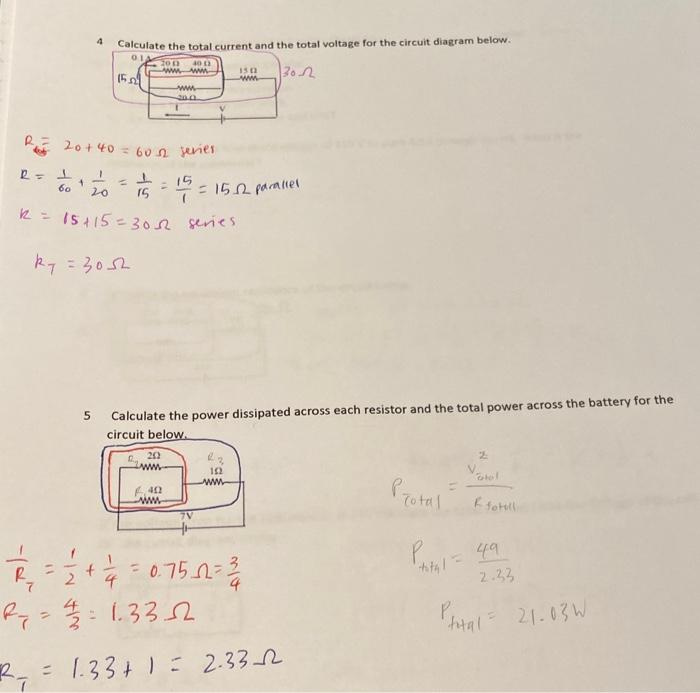 4 Calculate the total current and the total voltage for the circuit diagram below.
0.1A 20Ω 40Ω
15Ω 15Ω 30Ω
20Ω
I V
R = 20+40 = 60Ω series
R = 1/60 + 1/20 = 1/15 = 15/1 = 15Ω parallel
R = 15+15 = 30Ω series
RT = 30Ω
5 Calculate the power dissipated across each resistor and the total power across the battery for the
circuit below.
R2 2Ω R3
1Ω
R1 4Ω
7V
PTotal = V²total / R total
Ptotal = 49 / 2.33
Ptotal = 21.03W
1/RT = 1/2 + 1/4 = 0.75Ω = 3/4
RT = 4/3 = 1.33Ω
RT = 1.33 + 1 = 2.33Ω